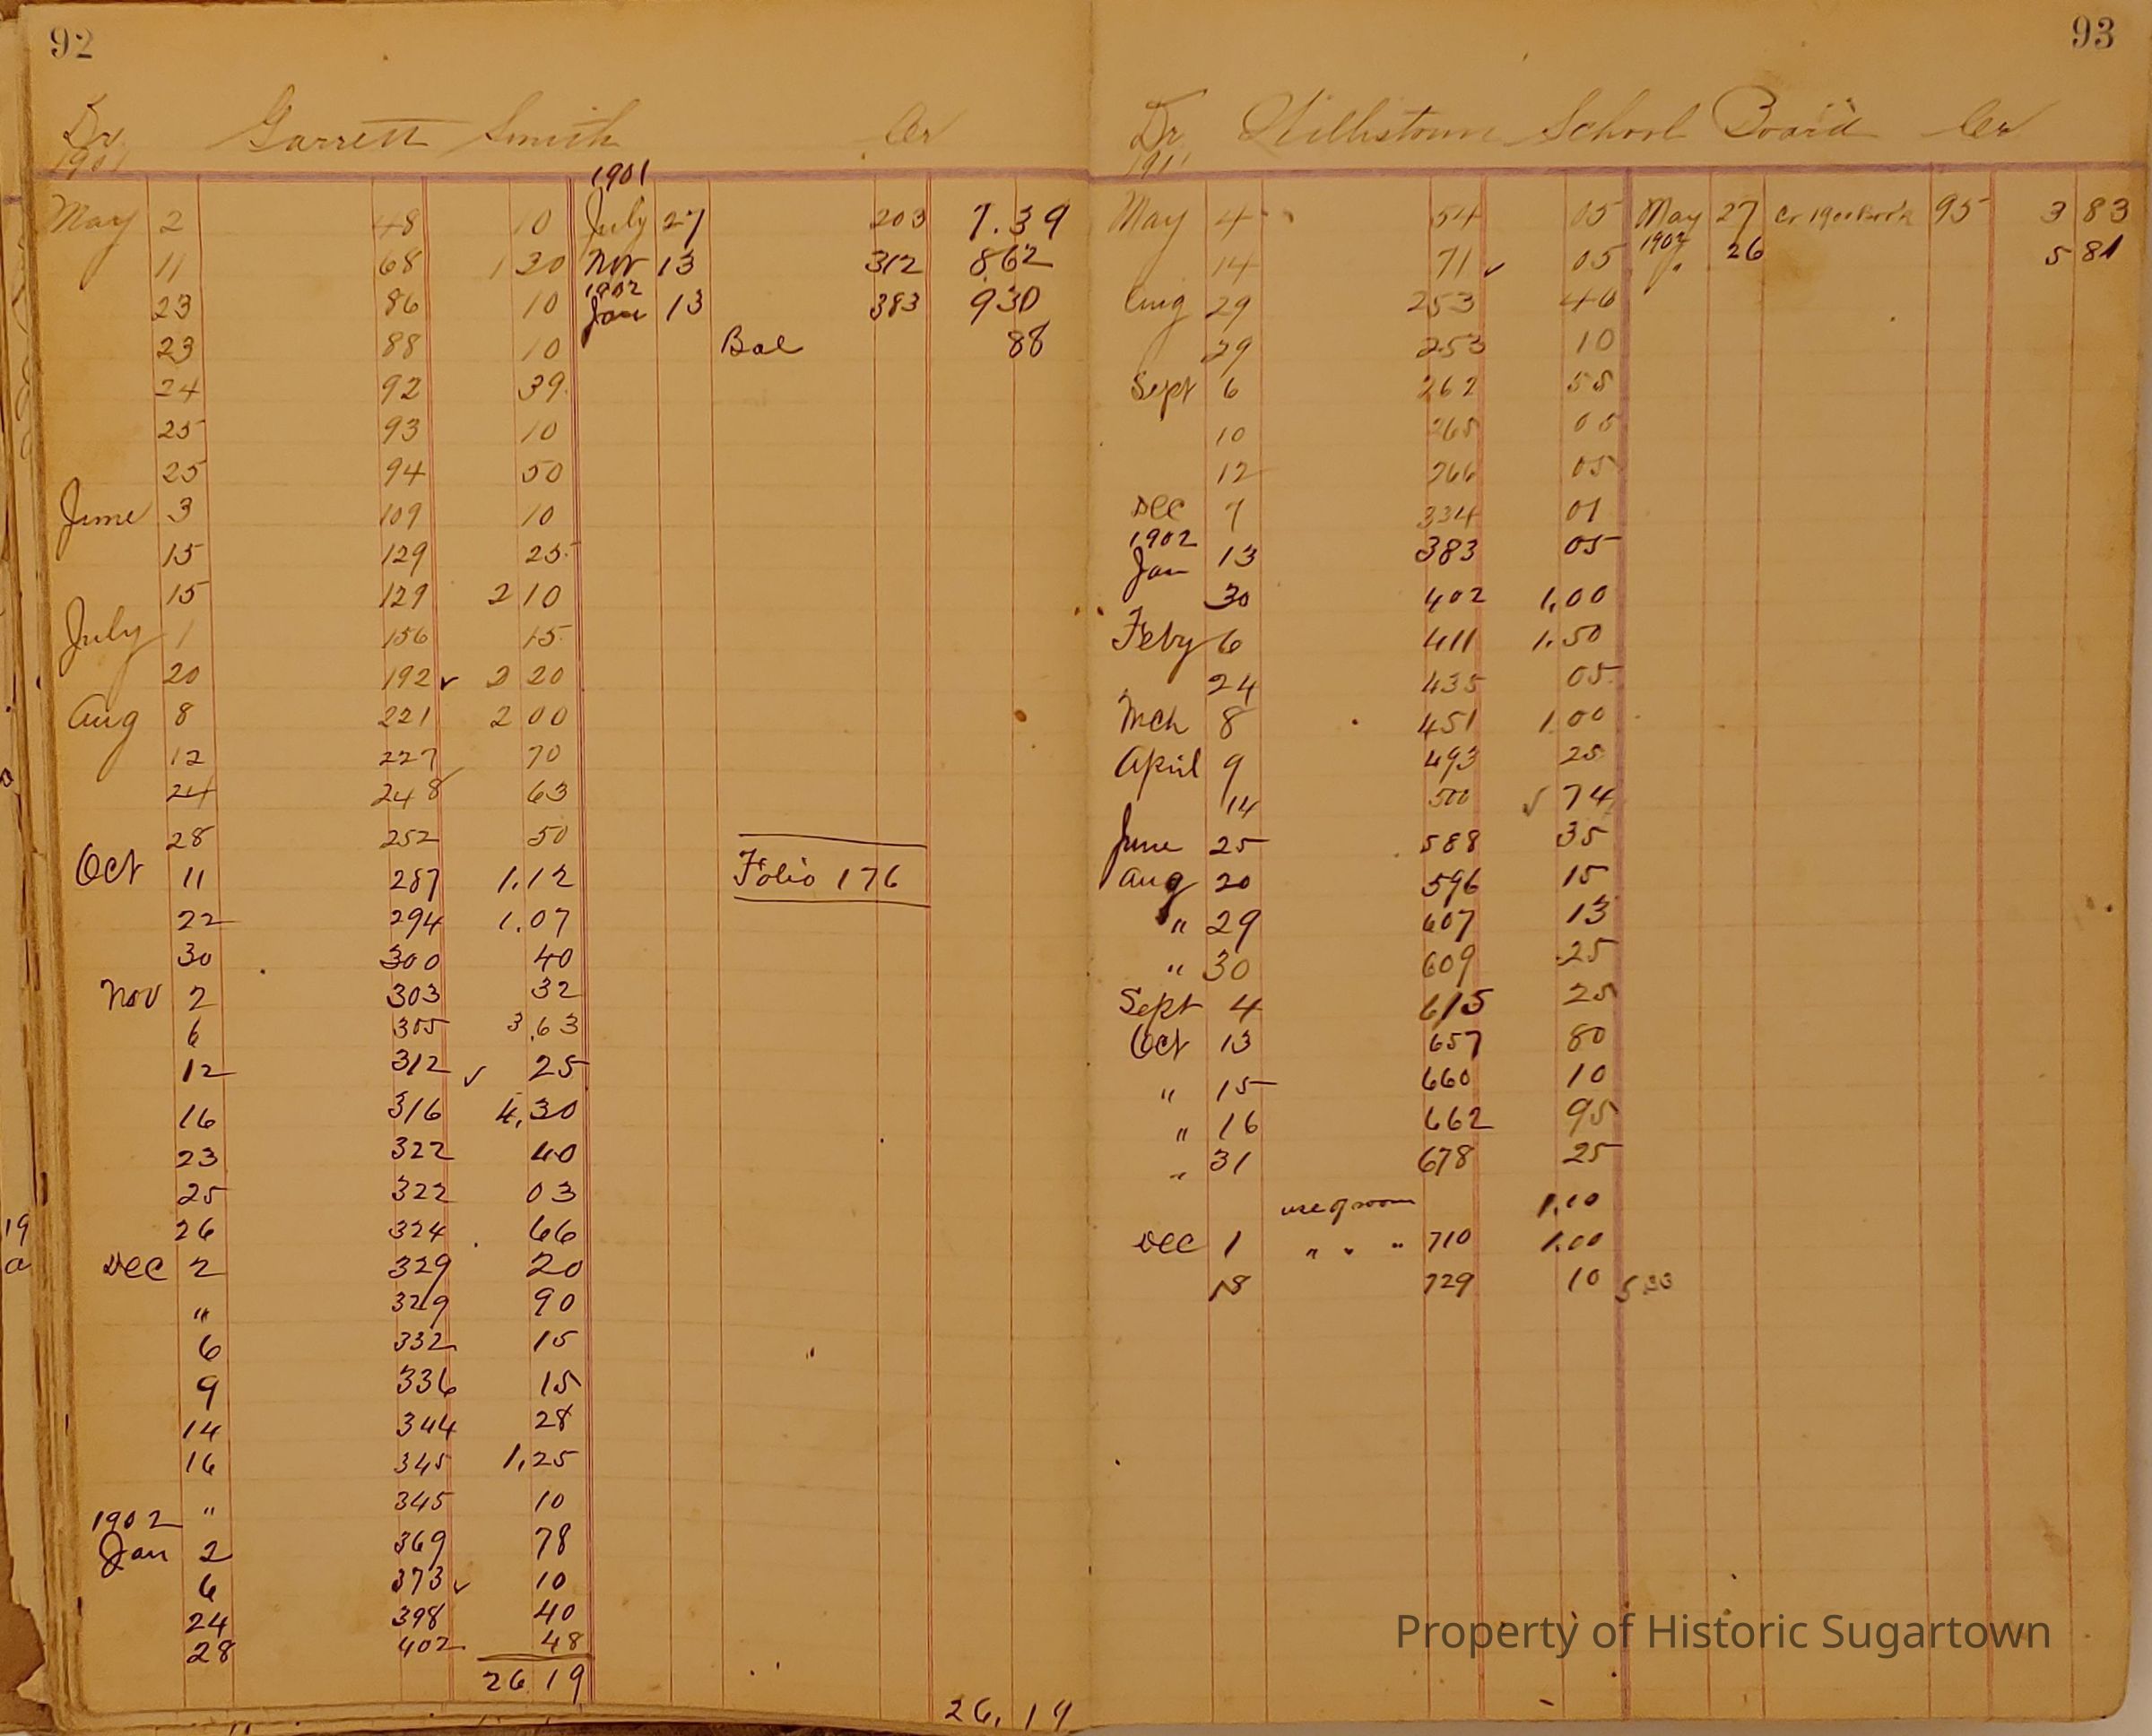 92
Dr Garrett Smith Cr
1901
1901
May 2 48 10 July 27 203 7.39
11 68 1 30 Nov 13 312 8.62
1902
23 86 10 Jan 13 383 9 30
23 88 10 Bal 88
24 92 39
25 93 10
25 94 50
June 3 109 10
15 129 25
15 129 2 10
July 1 156 15
20 192 ✓ 2 20
Aug 8 221 2 00
12 227 70
24 248 63
28 252 50
Oct 11 287 1.12 Folio 176
22 294 1.07
30 300 40
Nov 2 303 32
6 305 3.63
12 312 ✓ 25
16 316 4.30
23 322 40
25 322 03
26 324 66
Dec 2 329 20
" 329 90
6 332 15
9 336 15
14 344 28
16 345 1.25
" 345 10
1902
Jan 2 369 78
6 373 ✓ 10
24 398 40
28 402 48
26 19
26.19
93
Dr Willistown School Board Cr
1901
May 4 54 05 May 27 Cr 1900 Book 95 3 83
1902
14 71 ✓ 05 " 26 5 81
Aug 29 253 46
29 253 10
Sept 6 262 55
10 265 05
12 266 05
Dec 7 334 01
1902
Jan 13 383 05
30 402 1.00
Feby 6 411 1.50
24 435 05
Mch 8 451 1 00
April 9 493 25
14 500 ✓ 74
June 25 588 35
Aug 20 596 15
" 29 607 13
" 30 609 25
Sept 4 615 25
Oct 13 657 80
" 15 660 10
" 16 662 95
" 31 678 25
use of room 1.10
Dec 1 " " " 710 1.00
18 729 10 5 33
Property of Historic Sugartown